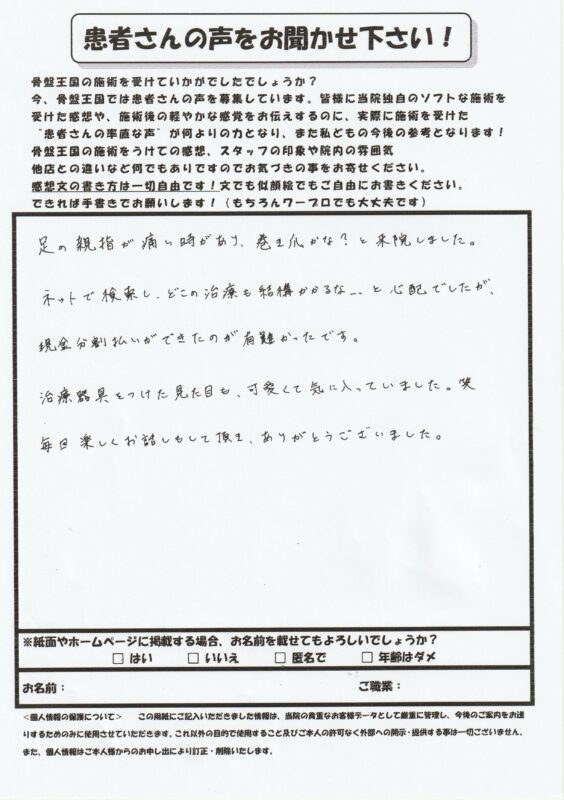 患者さんの声をお聞かせ下さい！
骨盤王国の施術を受けていかがでしたでしょうか？
今、骨盤王国では患者さんの声を募集しています。皆様に当院独自のソフトな施術を
受けた感想や、施術後の軽やかな感覚をお伝えするのに、実際に施術を受けた
"患者さんの率直な声"が何よりの力となり、また私どもの今後の参考となります！
骨盤王国の施術をうけての感想、スタッフの印象や院内の雰囲気
他店との違いなど何でもありですのでお気づきの事をお寄せください。
感想文の書き方は一切自由です！文でも似顔絵でもご自由にお書きください。
できれば手書きでお願いします！（もちろんワープロでも大丈夫です）
足の親指が痛い時があり、巻き爪かな？と来院しました。
ネットで検索し、どこの治療も結構かかるな…と心配でしたが、
現金分割払いができたのが有難かったです。
治療器具をつけた見た目も、可愛くて気に入っていました。笑
毎回楽しくお話しもして頂き、ありがとうございました。
※紙面やホームページに掲載する場合、お名前を載せてもよろしいでしょうか？
□ はい □ いいえ □ 匿名で □ 年齢はダメ
お名前： ご職業：
＜個人情報の保護について＞ この用紙にご記入いただきました情報は、当院の貴重なお客様データとして厳重に管理し、今後のご案内をお送
りするためのみに使用させていただきます。これ以外の目的で使用すること及びご本人の許可なく外部への開示・提供する事は一切ございません。
また、個人情報はご本人様からのお申し出により訂正・削除いたします。